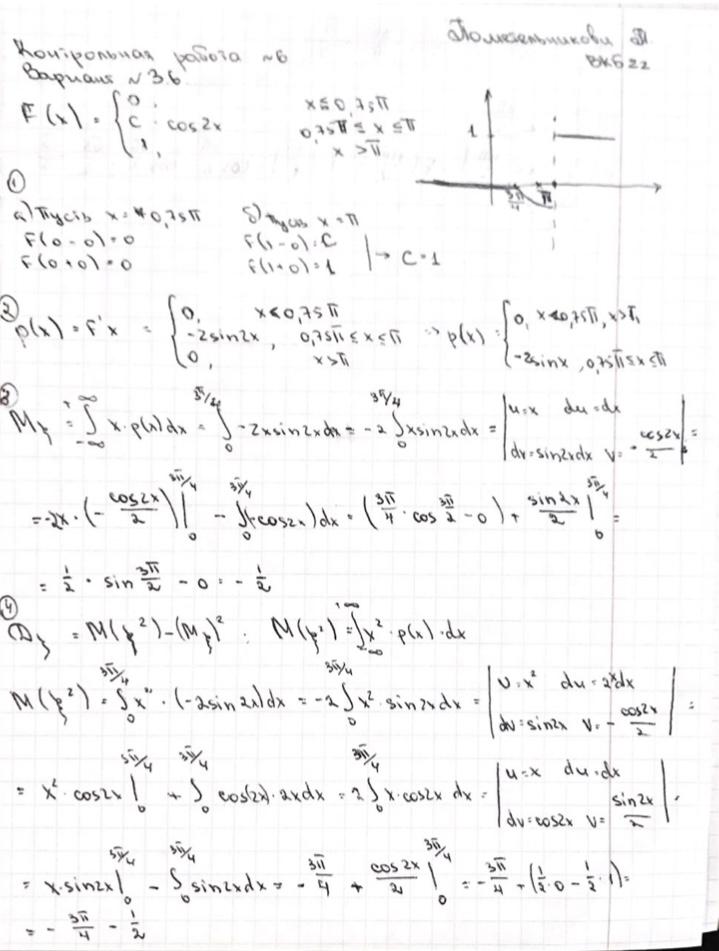 ВКБ22
Контрольная работа №6
Вариант №36
F(x) = { 0, x ≤ 0,75π
C · cos2x 0,75π ≤ x ≤ π
1, x > π
1
3π/4 π
①
а) Пусть x = 0,75π б) Пусть x = π
F(0-0) = 0 F(1-0) = C
F(0+0) = 0 F(1+0) = 1 | → C = 1
② p(x) = F'x = { 0, x < 0,75π
-2sin2x, 0,75π ≤ x ≤ π
0, x > π
⇒ p(x) = { 0, x < 0,75π, x > π,
-2sinx, 0,75π ≤ x ≤ π
③ Mξ = ∫_{-∞}^{+∞} x · p(x)dx = ∫_0^{3π/4} -2xsin2xdx = -2 ∫_0^{3π/4} xsin2xdx = | u=x du=dx
dv=sin2xdx v= -cos2x/2 | =
= -2x · (-cos2x/2) |_0^{3π/4} - ∫_0^{3π/4} (-cos2x)dx = (3π/4 · cos 3π/2 - 0) + sin2x/2 |_0^{3π/4} =
= 1/2 · sin 3π/2 - 0 = -1/2
④ Dξ = M(ξ²) - (Mξ)²; M(ξ²) = ∫_{-∞}^{+∞} x² · p(x) · dx
M(ξ²) = ∫_0^{3π/4} x² · (-2sin2x)dx = -2 ∫_0^{3π/4} x² · sin2xdx = | U=x² du=2xdx
dv=sin2x V= -cos2x/2 | =
= x² · cos2x |_0^{3π/4} + ∫_0^{3π/4} cos(2x) · 2xdx = 2 ∫_0^{3π/4} x · cos2x dx = | u=x du=dx
dv=cos2x V= sin2x/2 | =
= x · sin2x |_0^{3π/4} - ∫_0^{3π/4} sin2xdx = -3π/4 + cos2x/2 |_0^{3π/4} = -3π/4 + (1/2 · 0 - 1/2 · 1) =
= -3π/4 - 1/2